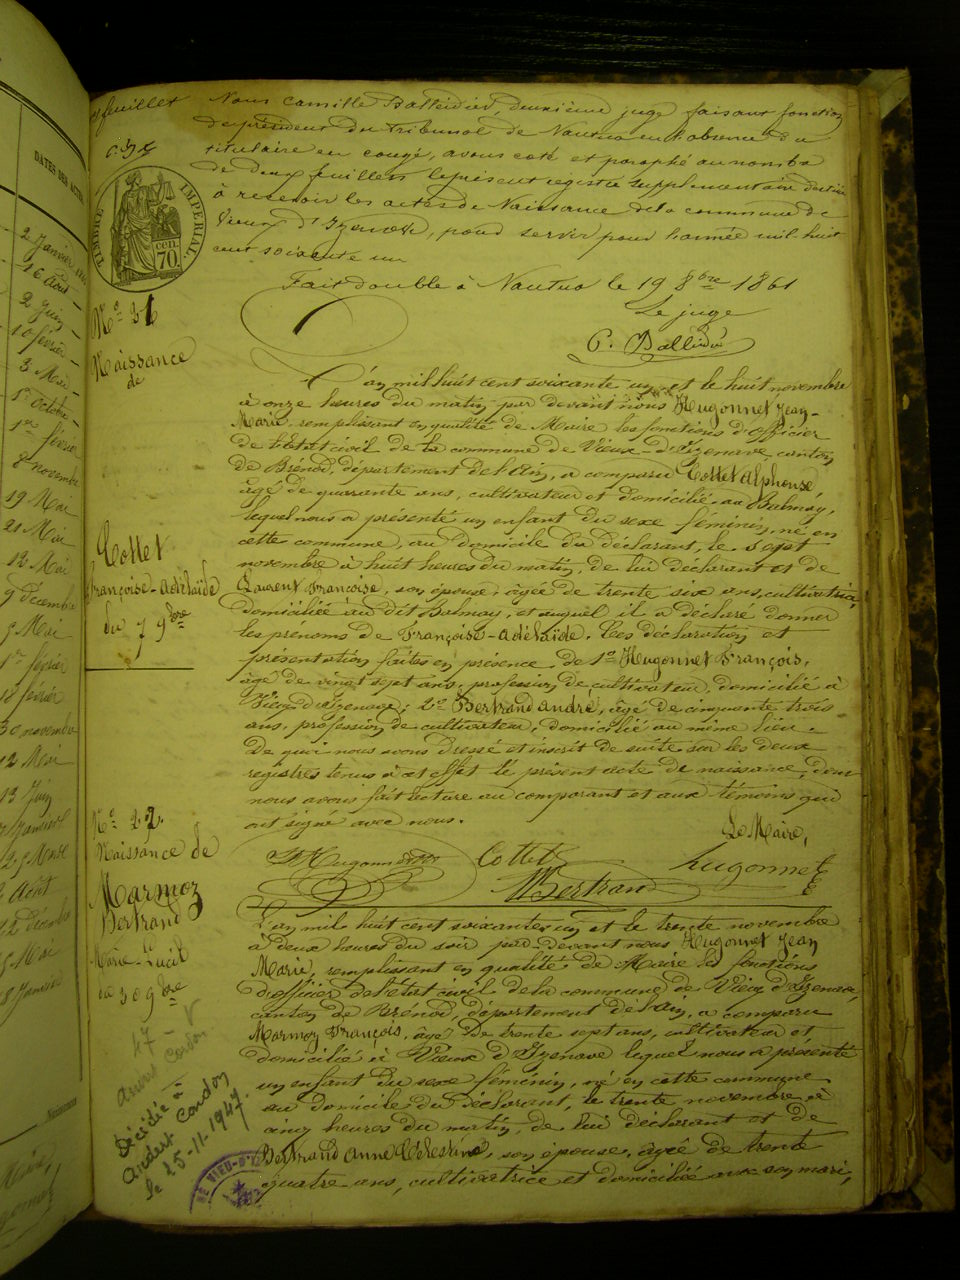 DATES DES ACTES
2 Janvier
16 Août
2 Juin
10 février
3 Mai
1er Octobre
1er février
8 novembre
19 Mai
21 Mai
12 Mai
9 décembre
5 Mai
1er février
18 février
30 novembre
12 Mai
13 Juin
Janvier
Août
22 décembre
5 Mai
8 Janvier
feuillet
TIMBRE IMPERIAL
70 cen.
Nous Camille Balleidier, deuxième juge faisant fonction
de président du tribunal de Nantua en l'absence du
titulaire en congé, avons coté et paraphé au nombre
de deux feuillets le présent registre supplémentaire destiné
à recevoir les actes de Naissance de la commune de
Vieux d'Izenave, pour servir pour l'année mil huit
cent soixante un
Fait double à Nantua le 19 8bre 1861
Le juge
C. Balleidier
No 21
Naissance
de
Cottet
Françoise-Adélaïde
du 7 9bre
L'an mil huit cent soixante un, et le huit novembre
à onze heures du matin par devant nous Hugonnet Jean-
Marie, remplissant en qualité de Maire les fonctions d'officier
de l'état civil de la commune de Vieux-d'Izenave, canton
de Brenod, département de l'Ain, a comparu Cottet Alphonse,
âgé de quarante ans, cultivateur et domicilié au Balmay,
lequel nous a présenté un enfant du sexe féminin, né en
cette commune, au domicile du déclarant, le sept
novembre à huit heures du matin, de lui déclarant et de
Laurent Françoise, son épouse, âgée de trente six ans, cultivatrice,
domiciliée au dit Balmay, et auquel il a déclaré donner
les prénoms de Françoise-Adélaïde. Ces déclaration et
présentation faites en présence de 1o Hugonnet François,
âgé de vingt sept ans, profession de cultivateur, domicilié à
Vieux d'Izenave; 2o Bertrand André, âgé de cinquante trois
ans, profession de cultivateur, domicilié au même lieu.
De quoi nous avons dressé et inscrit de suite sur les deux
registres tenus à cet effet le présent acte de naissance, dont
nous avons fait lecture au comparant et aux témoins qui
ont signé avec nous.
Le Maire,
Hugonnet Cottet Hugonnet
Bertrand
No 22
Naissance de
Marmoz
Bertrand
Marie-Lucil
du 30 9bre
Décédée à
Andert Condon
le 15-11-1947.
L'an mil huit cent soixante un et le trente novembre
à deux heures du soir par-devant nous Hugonnet Jean
Marie, remplissant en qualité de Maire les fonctions
d'officier de l'état civil de la commune de Vieux d'Izenave,
canton de Brenod, département de l'ain, a comparu
Marmoz François, âgé de trente sept ans, cultivateur et
domicilié à Vieux d'Izenave lequel nous a présenté
un enfant du sexe féminin, né en cette commune
au domicile du déclarant, le trente novembre à
cinq heures du matin, de lui déclarant et de
Bertrand Anne Célestine, son épouse, agée de trente
quatre ans, cultivatrice et domiciliée avec son mari,